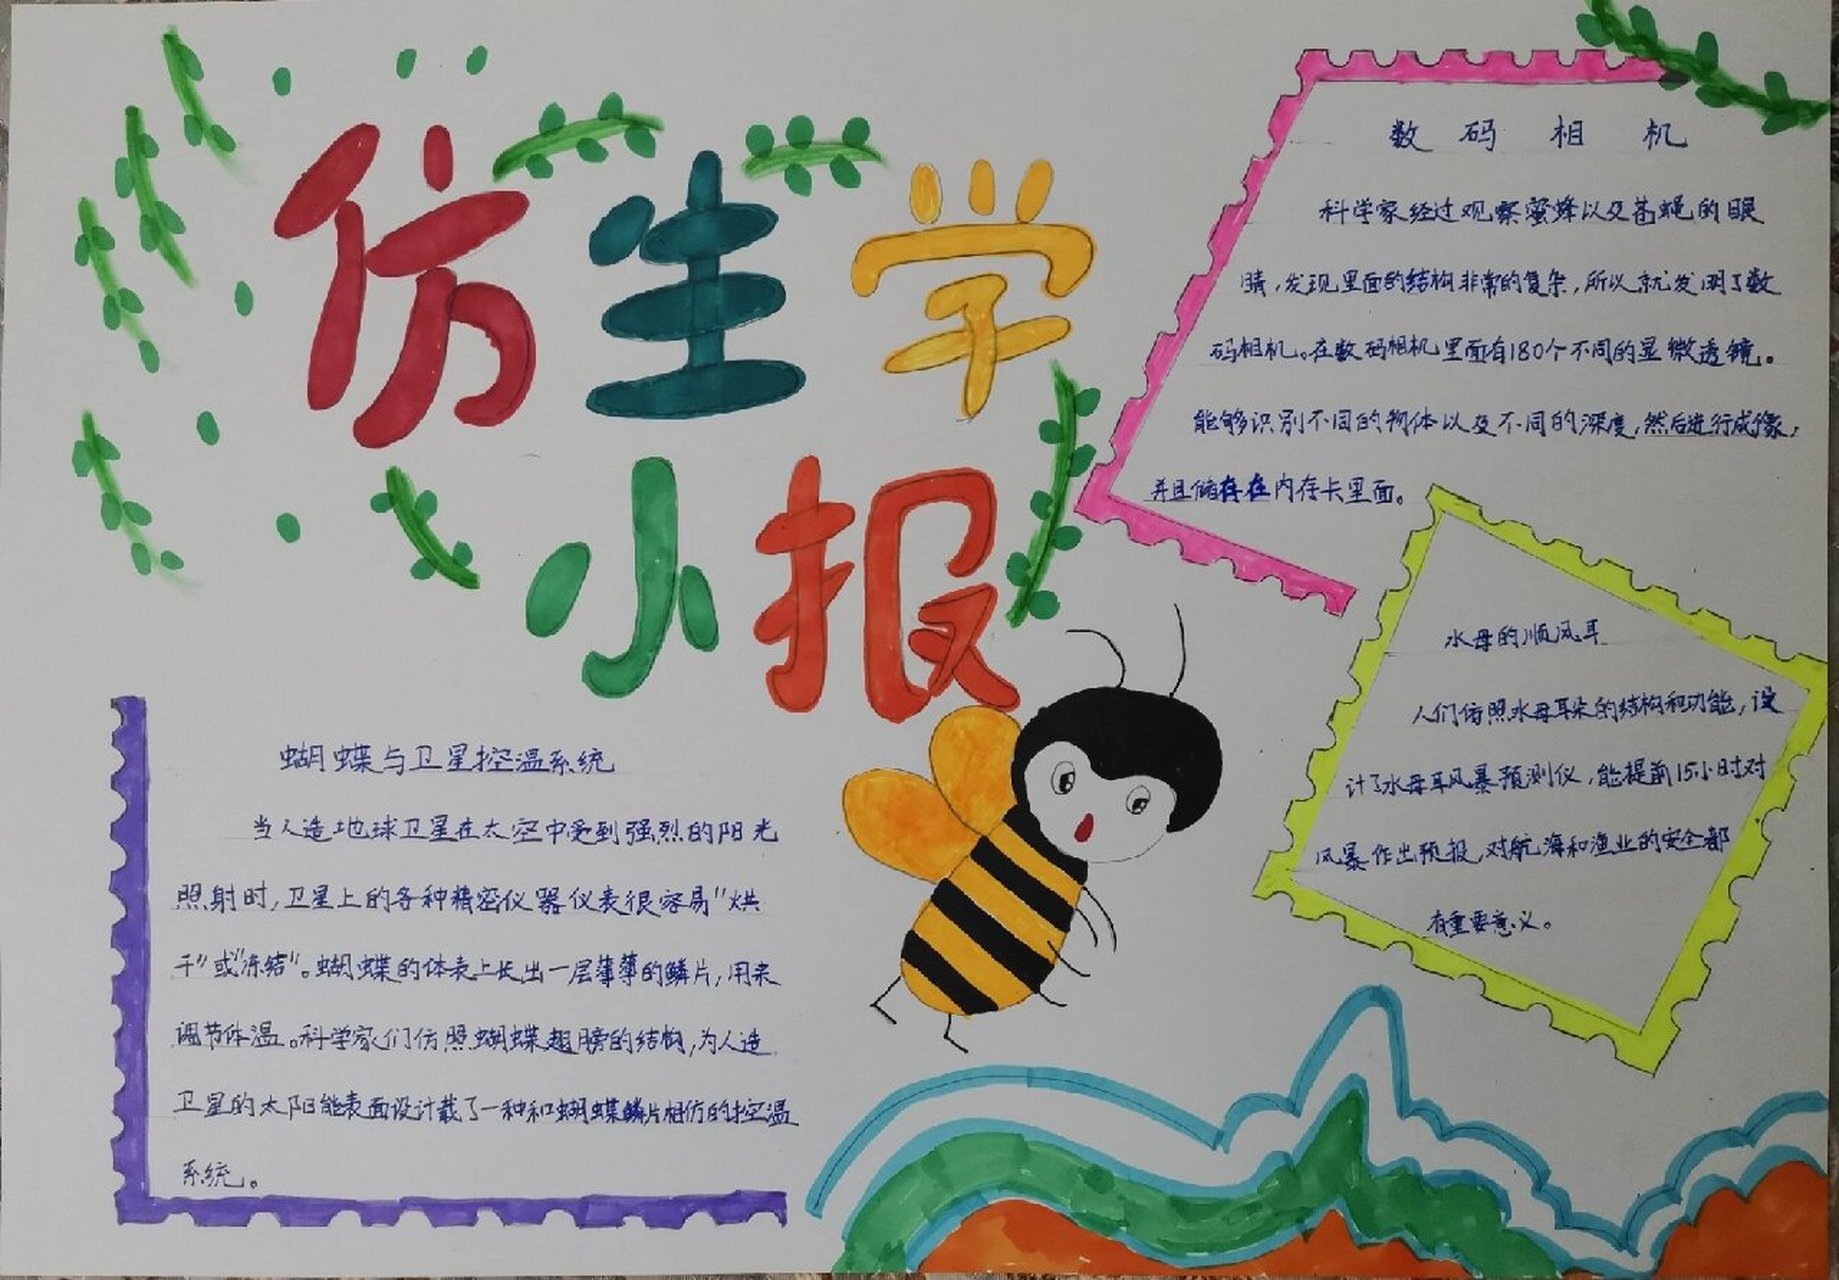 仿生学
小报
数码相机
科学家经过观察蜜蜂以及苍蝇的眼
睛，发现里面的结构非常的复杂，所以就发明了数
码相机。在数码相机里面有180个不同的显微透镜。
能够识别不同的物体以及不同的深度，然后进行成像，
并且储存在内存卡里面。
水母的顺风耳
人们仿照水母耳朵的结构和功能，设
计了水母耳风暴预测仪，能提前15小时对
风暴作出预报，对航海和渔业的安全都
有重要意义。
蝴蝶与卫星控温系统
当人造地球卫星在太空中受到强烈的阳光
照射时，卫星上的各种精密仪器仪表很容易"烘
干"或"冻结"。蝴蝶的体表上长出一层薄薄的鳞片，用来
调节体温。科学家们仿照蝴蝶翅膀的结构，为人造
卫星的太阳能表面设计载了一种和蝴蝶鳞片相仿的控温
系统。